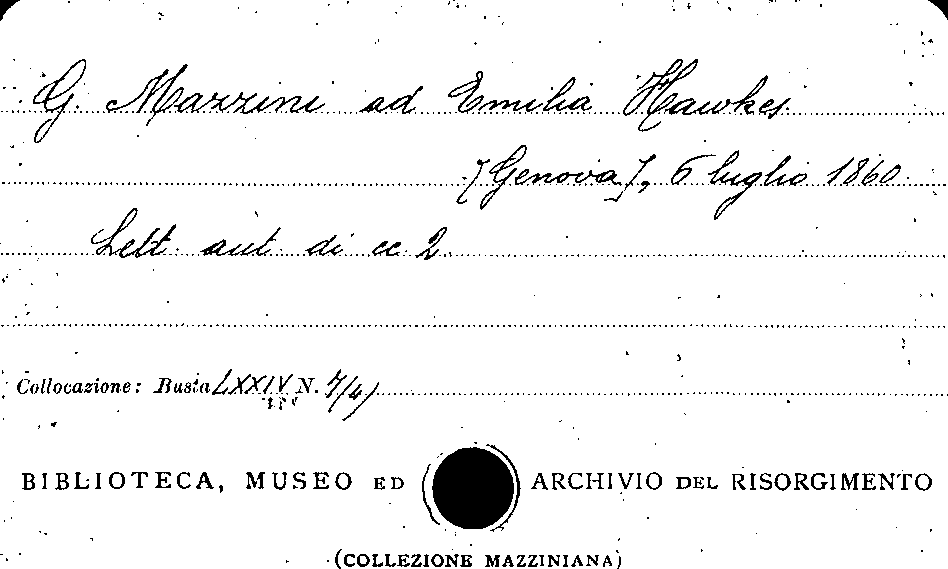 G. Mazzini ad Emilia Hawkes
[Genova], 6 luglio 1860.
Lett. aut. di cc 2.
Collocazione: Busta LXXIV N. 7/4)
BIBLIOTECA, MUSEO ED ARCHIVIO DEL RISORGIMENTO
(COLLEZIONE MAZZINIANA)